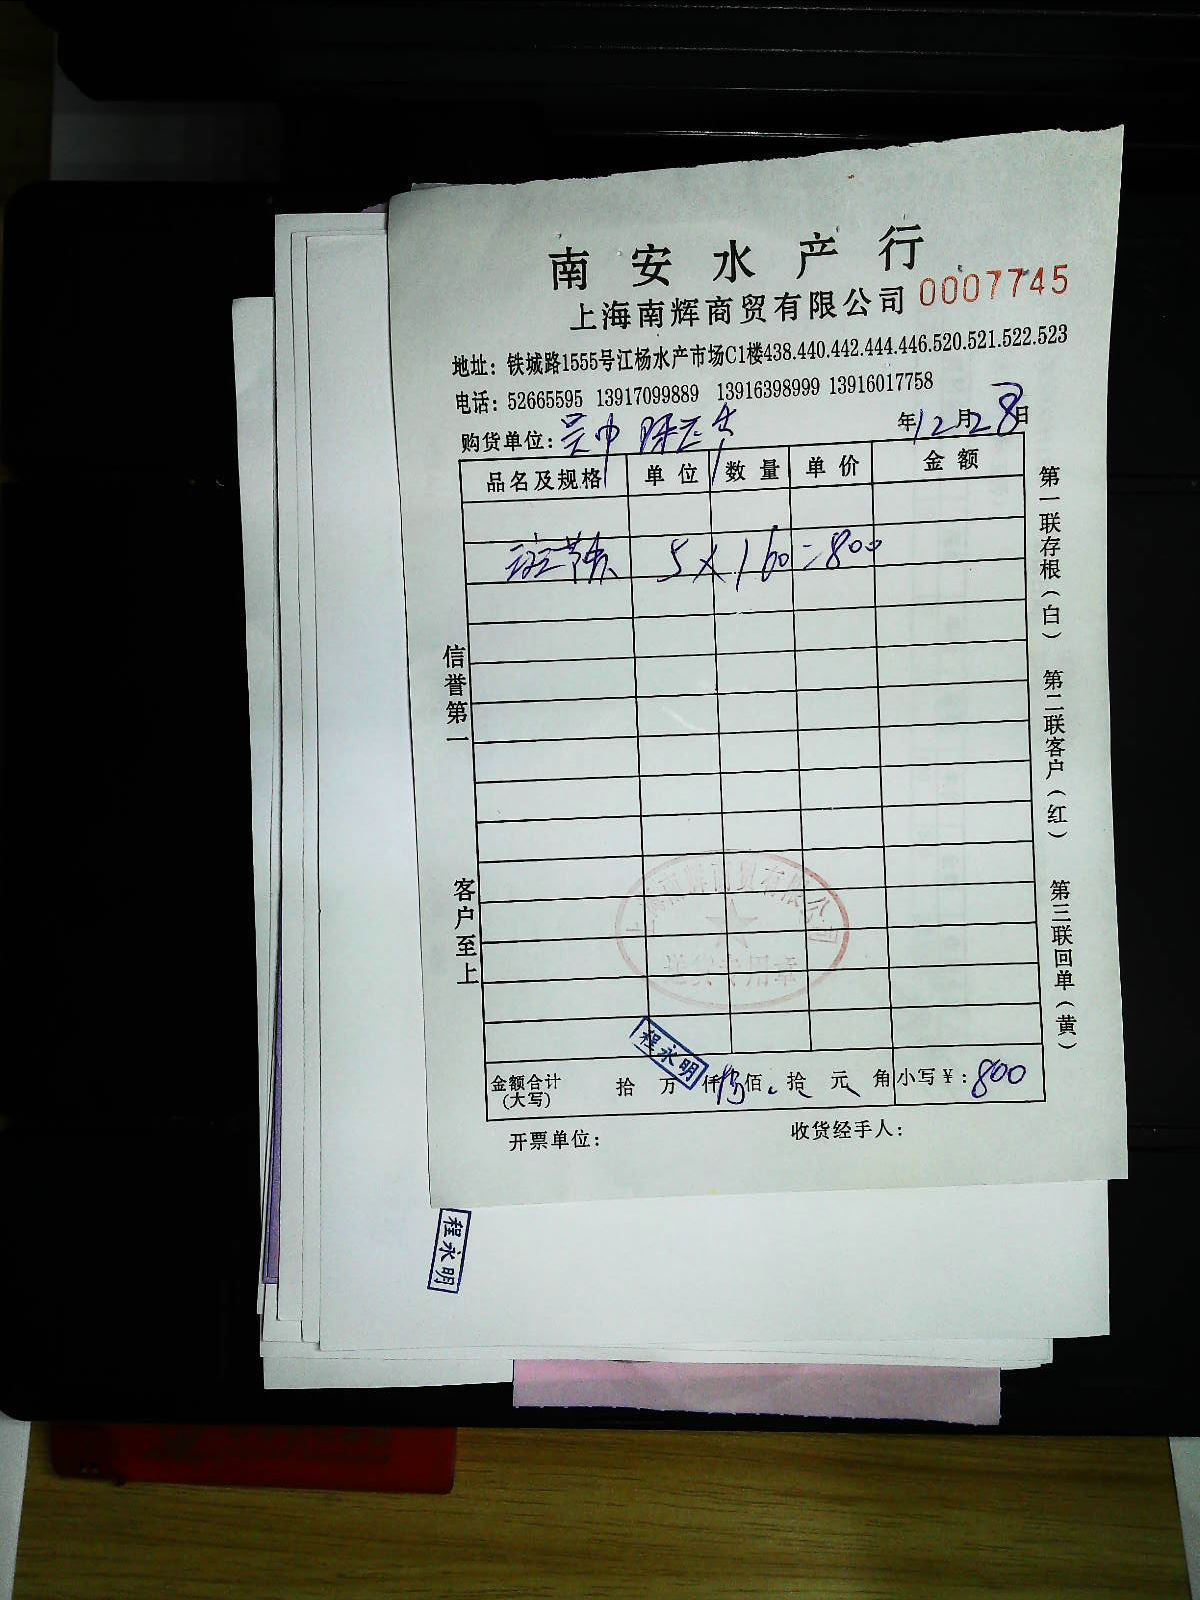 南安水产行
上海南辉商贸有限公司 0007745
地址：铁城路1555号江杨水产市场C1楼438.440.442.444.446.520.521.522.523
电话：52665595 13917099889 13916398999 13916017758
购货单位：吴中 年12月28日
品名及规格 单位 数量 单价 金额
斑节 5×160=800
信誉第一
客户至上
第一联存根（白）
第二联客户（红）
第三联回单（黄）
上海南辉商贸有限公司
专用章
程永明
金额合计（大写） 拾 万 仟 捌 佰 拾 元 角 小写￥：800
开票单位： 收货经手人：
程永明